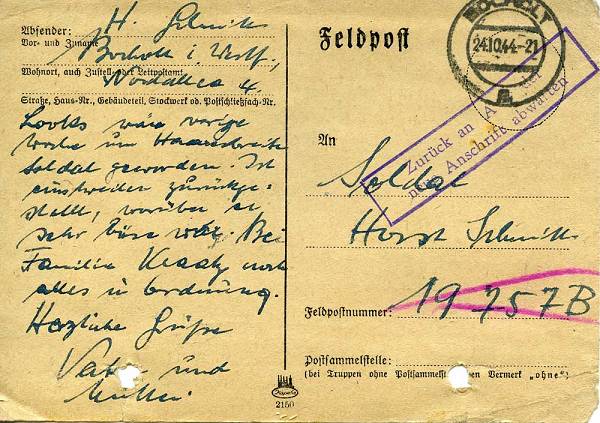 Absender: H. Schmitz
Vor- und Zuname
Bocholt i. Westf.
Wohnort, auch Zustell- oder Leitpostamt
Nordallee 4.
Straße, Haus-Nr., Gebäudeteil, Stockwerk od. Postschließfach-Nr.
wäre vorige
Woche um Haaresbreite
Soldat geworden. Ist
einstweilen zurückge-
stellt, worüber er
sehr böse war. Bei
Familie noch
alles in Ordnung.
Herzliche Grüße
Vater und
Mutter
Feldpost
BOCHOLT
24.10.44-21
a
Zurück an A
neue Anschrift abwarten
An
Soldat
Horst Schmitz
Feldpostnummer: 19757B
Postsammelstelle:
(bei Truppen ohne Postsammelst en Vermerk „ohne“)
2150